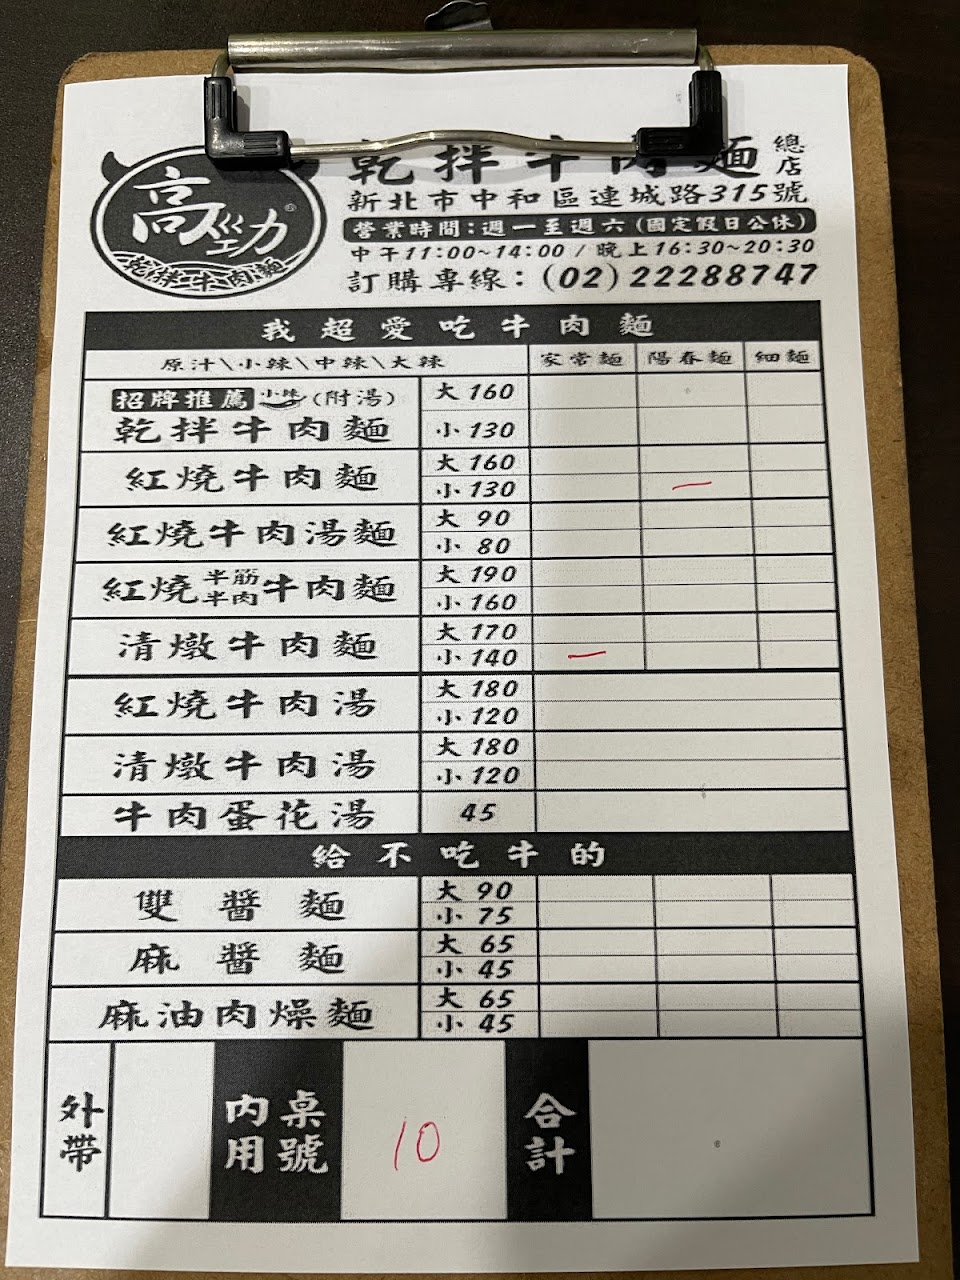 乾拌牛肉麵 總店
新北市中和區連城路315號
高
乾拌牛肉麵
營業時間:週一至週六(國定假日公休)
中午11:00~14:00 / 晚上16:30~20:30
訂購專線:(02)22288747
我超愛吃牛肉麵
原汁\小辣\中辣\大辣 家常麵 陽春麵 細麵
招牌推薦 (附湯) 大 160
乾拌牛肉麵 小 130
紅燒牛肉麵 大 160
小 130 一
紅燒牛肉湯麵 大 90
小 80
紅燒半筋半肉牛肉麵 大 190
小 160
清燉牛肉麵 大 170
小 140 一
紅燒牛肉湯 大 180
小 120
清燉牛肉湯 大 180
小 120
牛肉蛋花湯 45
給不吃牛的
雙醬麵 大 90
小 75
麻醬麵 大 65
小 45
麻油肉燥麵 大 65
小 45
外帶 內用桌號 10 合計